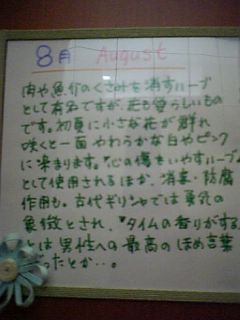 8月 August
肉や魚介のくさみを消すハーブ
として有名ですが、花も愛らしいもの
です。初夏に小さな花が群れ
咲くと一面やわらかな白やピンク
に染まります。"心の傷をいやすハーブ"
として使用されるほか、消毒・防腐
作用も。古代ギリシャでは勇気の
象徴とされ、"タイムの香りがする"
とは男性への最高のほめ言葉
だったとか…。